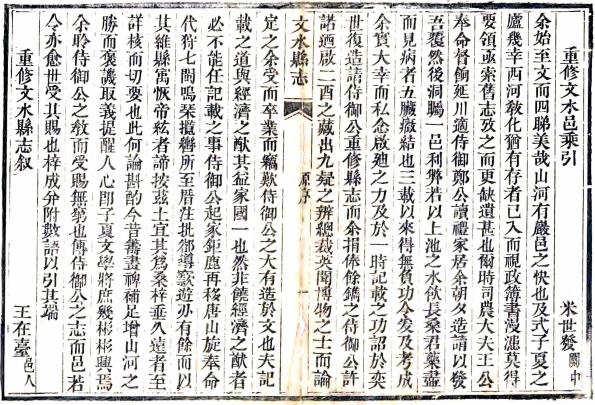 重修文水邑乘引
米世發關中
余始至文而四睇美哉山河有嚴邑之快也及式子夏之
廬幾辛西河敎化猶有存者已入而視政簿書漫漶莫得
要領亟索舊志攷之而更缺遺甚也爾時司農大夫王公
奉命督餉延川適侍御鄭公讀禮家居余朝夕造請以發
吾覆然後洞矚一邑利弊若以上池之水飲長桑君藥盡
而見病者五臟癥結也三載以來得無負功令发及考成
余實大幸而私念啟廸之力及於一時記載之功詔於奕
世復造請侍御公重修縣志而余捐俸餘鐫之侍御公許
諾廼啟二酉之藏出九疑之辨總裁英聞博物之士而論
文水縣志
原序
一
定之余受而卒業而竊歎侍御公之大有造於文也夫記
載之道與經濟之猷其益家國一也然非饒經濟之猷者
必不能任記載之事侍御公起家鉅鹿再移唐山旋奉命
代狩七閩鳴琹攬轡所至厝注批郤導窽遊刃有餘而以
其維縣寓恢帝紘者諦按兹土宜其爲桑梓垂久遠者至
詳核而切要也此何論斟酌今昔籌畫裨補足增山河之
勝而褒譏取義提醒人心卽子夏文學將庶幾彬彬興焉
余聆侍御公之敎而受賜無第也傳侍御公之志而邑若
令亦愈世受其賜也梓成分附數語以引其端
重修文水縣志叙
王在臺邑人